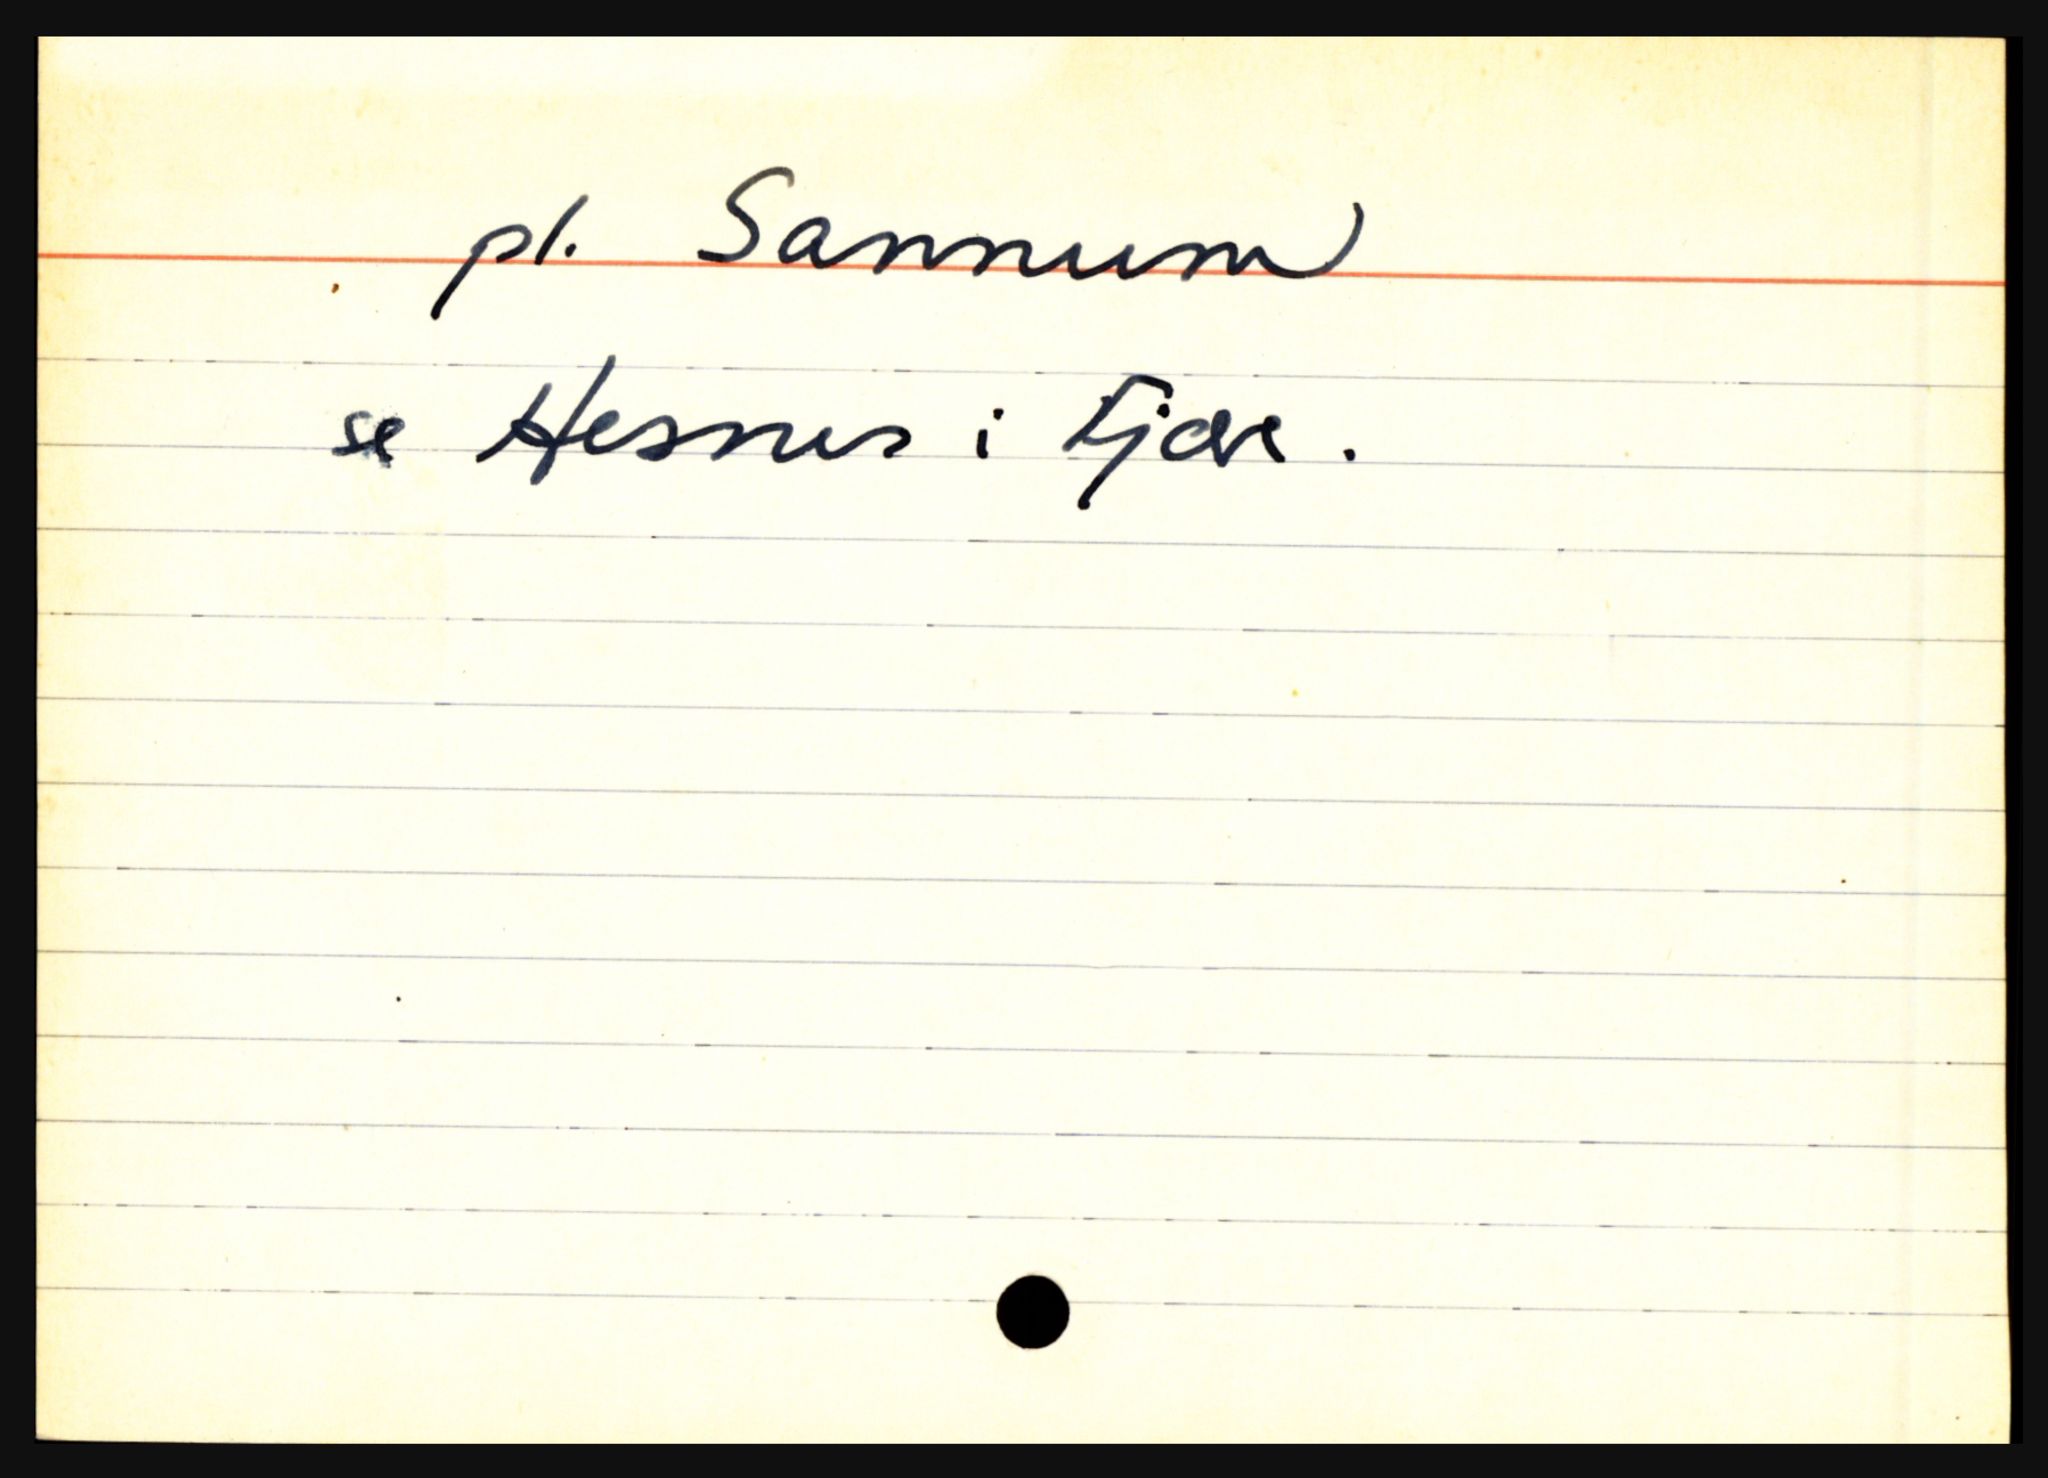 pl. Sannum
se Hesnes i Fjære.